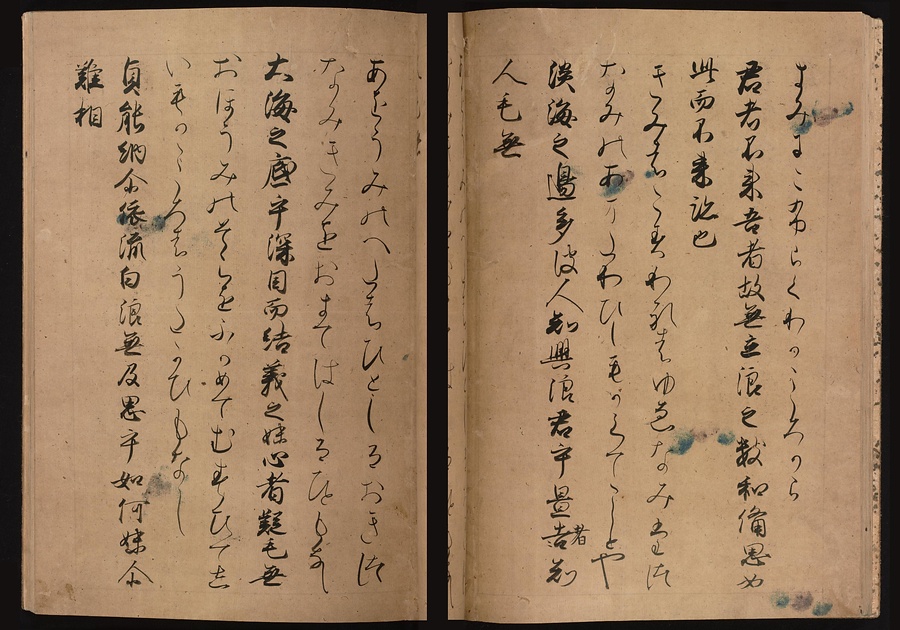 きみにこふらくわかこゝろから
君者不来吾者故無立浪之數和備思如
此而不来跡也
きみはこすわれはゆゑなみたつ
なみのあまたわひしもかくてこしとや
淡海之邊多波人知興浪君乎置者知
人毛無
あふうみのへたはひとしるおきつ
なみきみをおきてはしるひともなし
大海之底乎深目而結義之妹心者疑毛無
おほうみのそこをふかめてむすひてし
いもかこゝろはうたかひもなし
貞能納尓依流白浪無及思乎如何妹尓
難相